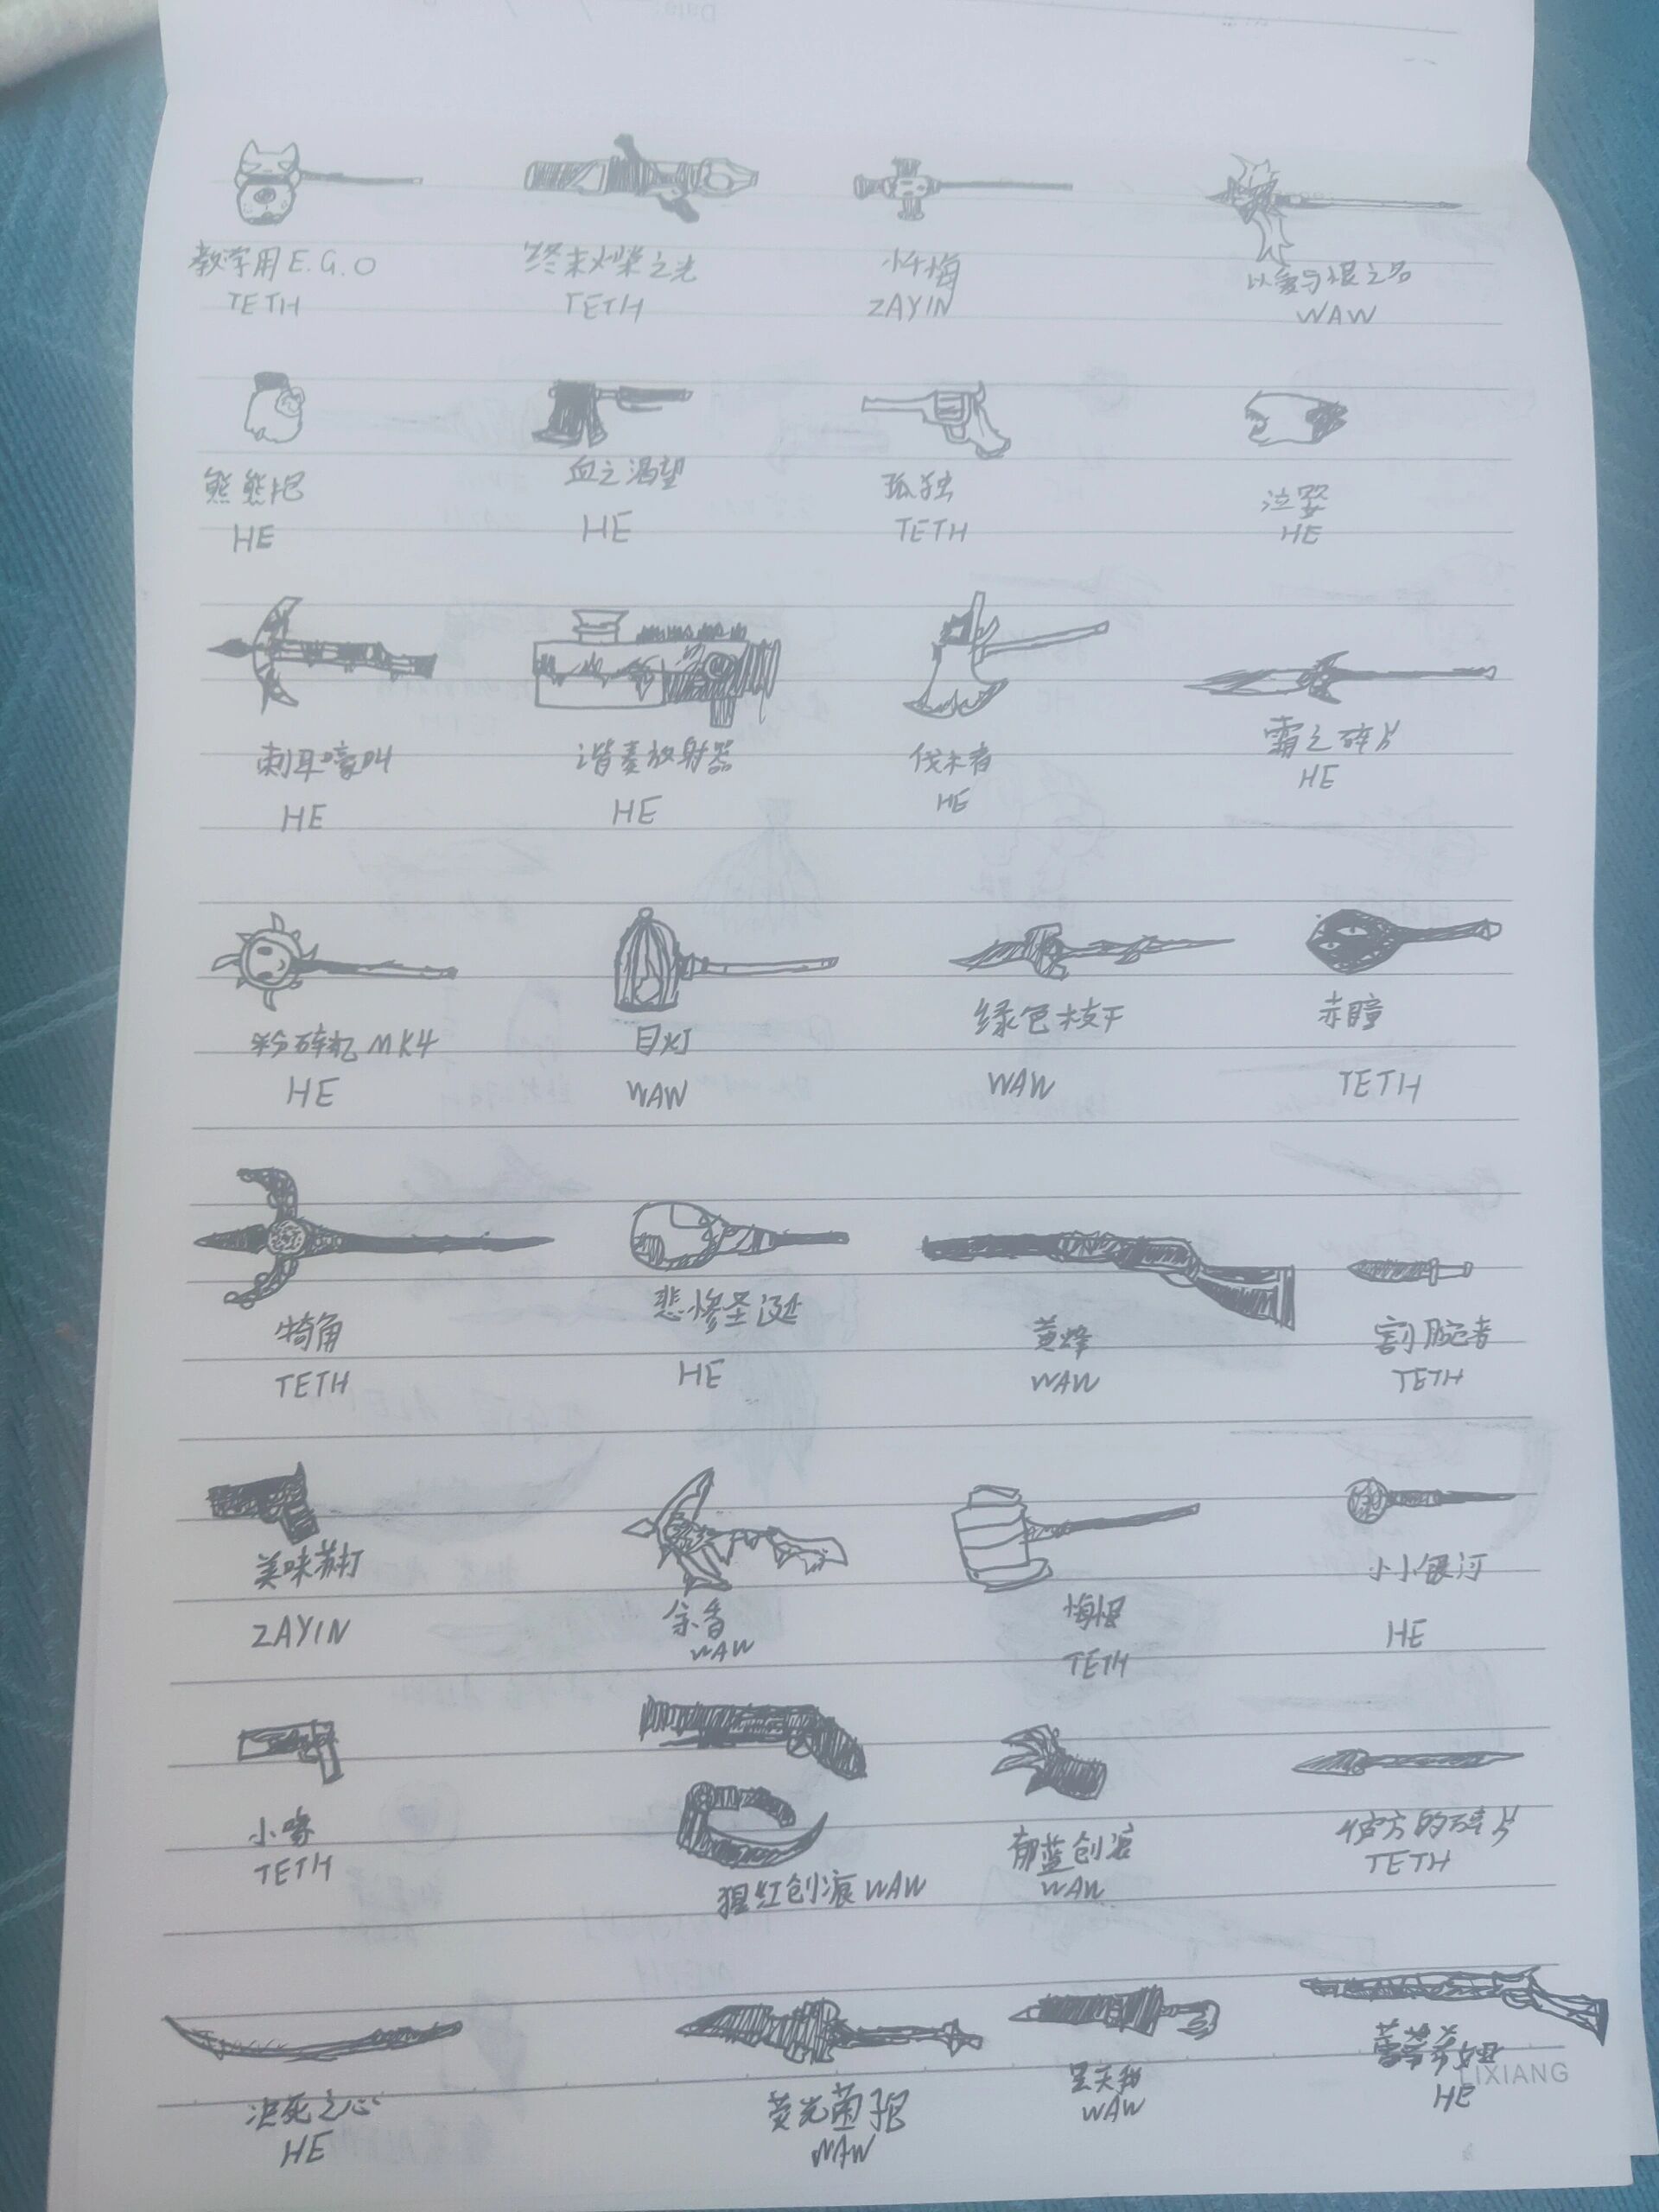 教学用E.G.O
TETH
终末火柴之光
TETH
忏悔
ZAYIN
以爱与恨之名
WAW
熊熊抱
HE
血之渴望
HE
孤独
TETH
泣婴
HE
刺耳嚎叫
HE
谐奏放射器
HE
伐木者
HE
霜之碎片
HE
粉碎机MK4
HE
目灯
WAW
绿色枝干
WAW
赤瞳
TETH
犄角
TETH
悲惨圣诞
HE
黄蜂
WAW
割腕者
TETH
美味苏打
ZAYIN
余香
WAW
悔恨
TETH
小小银河
HE
小喙
TETH
猩红创痕WAW
郁蓝创痕
WAW
彼方的碎片
TETH
决死之心
HE
荧光菌孢
WAW
WAW
HE
LIXIANG